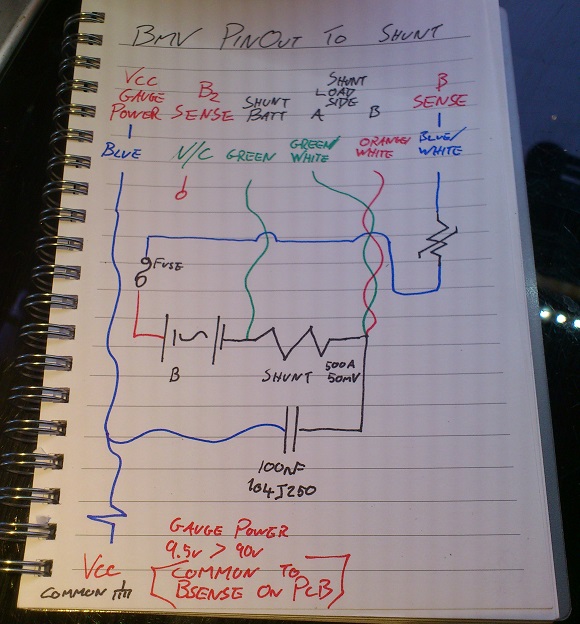 BMV PINOUT TO SHUNT
VCC GAUGE POWER
B2 SENSE
SHUNT BATT
SHUNT LOAD SIDE
A B
B SENSE
BLUE
N/C
GREEN
GREEN/WHITE
ORANGE/WHITE
BLUE/WHITE
FUSE
B
SHUNT
500A
50MV
100NF
104J250
GAUGE POWER
9.5V > 90V
VCC
[COMMON TO
BSENSE ON PCB]
COMMON